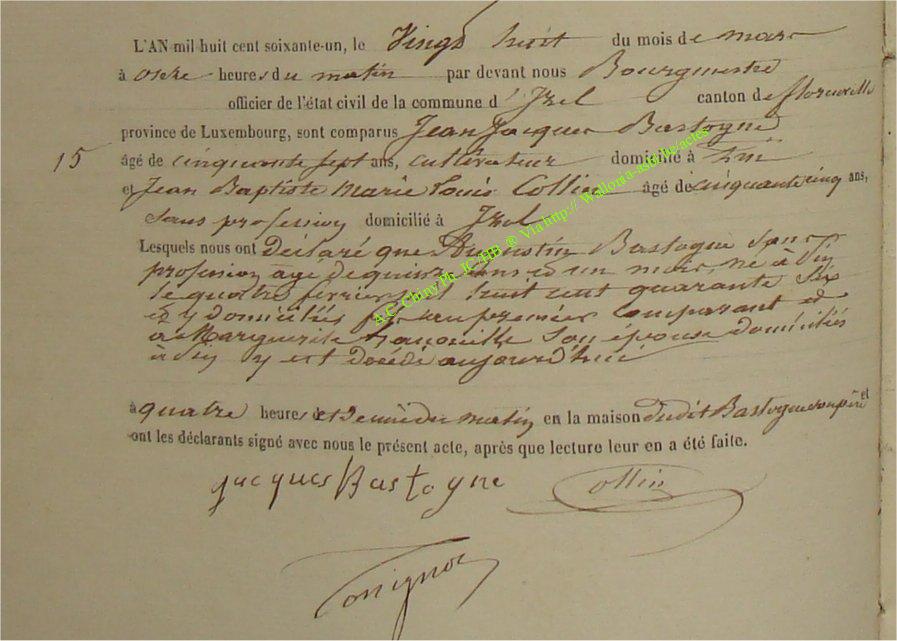 L'AN mil huit cent soixante-un, le Vingt huit du mois de mars
à onze heures du matin par devant nous Bourgmestre
officier de l'état civil de la commune d'Izel canton de florenville
province de Luxembourg, sont comparus Jean Jacques Bastogne
15 âgé de cinquante sept ans, cultivateur domicilié à Pin
et Jean Baptiste Marie Louis Collin âgé de cinquante cinq ans,
sans profession domicilié à Izel
Lesquels nous ont déclaré que Augustin Bastogne sans
profession agé de quinze ans et un mois, né à Pin
le quatre février huit cent quarante six
et y domicilié fils du premier comparant et
a Marguerite son épouse domiciliés
à Pin y est décédé aujourd'hui
à quatre heures et demie du matin en la maison dudit Bastogne son père et
ont les déclarants signé avec nous le présent acte, après que lecture leur en a été faite.
Jacques Bastogne Collin
A.C. Chiny Ph. JC/HB ® Via http:// Wallonia-asbl.be/actes